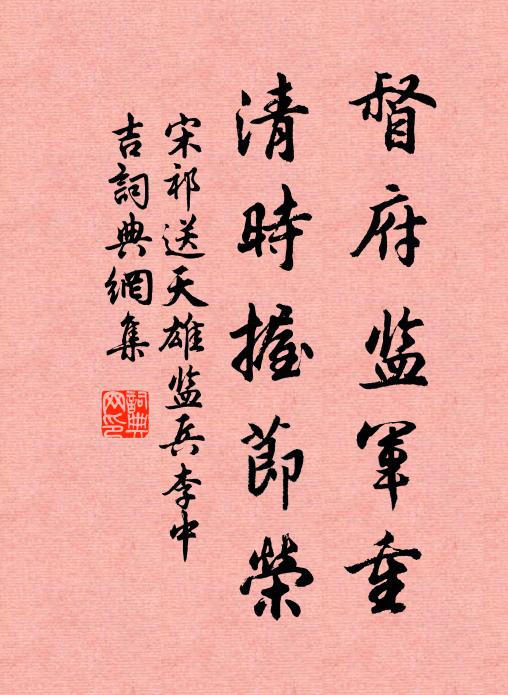 督府监军重
清時握節榮
宋祁送天雄监兵李中
吉詞典網集
詞典网印